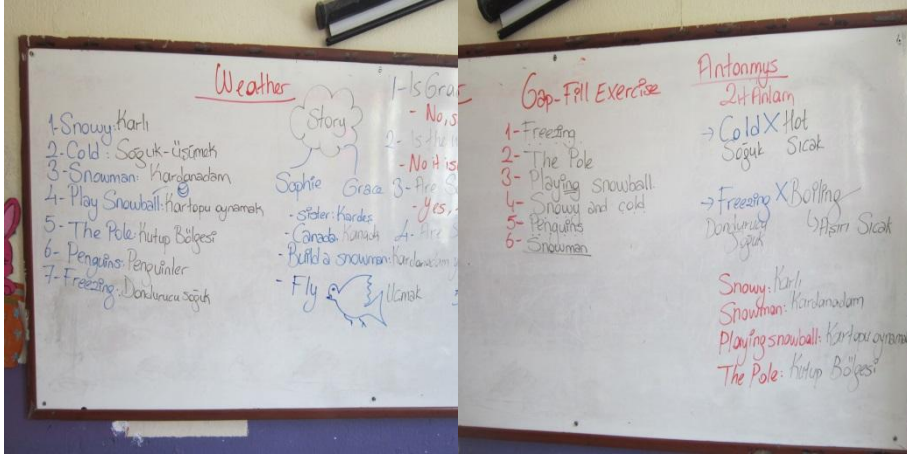 Weather
1-Snowy: Karlı
2-Cold: Soğuk-üşümek
3-Snowman: Kardanadam
4-Play Snowball: Kartopu oynamak
5-The Pole: Kutup Bölgesi
6-Penguins: Penguinler
7-Freezing: Dondurucu soğuk
Story
Sophie Grace
-sister: Kardes
-Canada: Kanada
-Build a snowman: Kardanadam
-Fly Ucmak
1-Is Grac
-No, s
2-Is the
-No it is
3-Are S
-Yes,
4-Are S
Gap-Fill Exercise
1-Freezing
2-The Pole
3-Playing snowball
4-Snowy and cold
5-Penguins
6-Snowman
Antonmys
Zıt Anlam
→Cold X Hot
Soğuk Sıcak
→Freezing X Boiling
Dondurucu Aşırı Sıcak
Soğuk
Snowy: Karlı
Snowman: Kardanadam
Playing snowball: Kartopu oynama
The Pole: Kutup Bölgesi